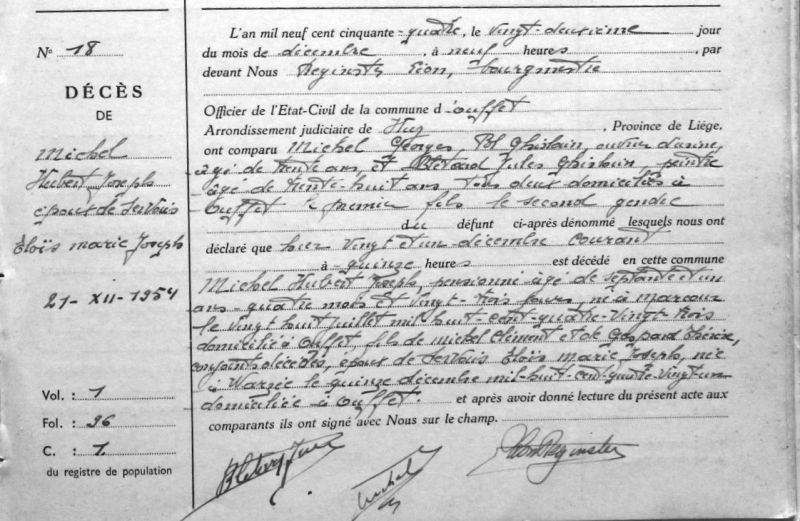 N° 18
DÉCÈS
DE
Michel
Hubert Joseph
époux de Servais
Eloïs Marie Joseph
21-XII-1954
Vol. : 1
Fol. : 96
C. : 1.
du registre de population
L'an mil neuf cent cinquante-quatre, le vingt-deuxième jour
du mois de décembre, à neuf heures, par
devant Nous Reginster Léon, bourgmestre
Officier de l'Etat-Civil de la commune d'Ouffet
Arrondissement judiciaire de Huy, Province de Liége,
ont comparu Michel Georges, Ghislain, ouvrier d'usine,
âgé de trente ans, et Jules Ghislain, peintre
âgé de trente-huit ans tous deux domiciliés à
Ouffet le premier fils le second gendre
du défunt ci-après dénommé lesquels nous ont
déclaré que hier vingt et un décembre courant
à quinze heures est décédé en cette commune
Michel Hubert Joseph, pensionné âgé de septante et un
ans quatre mois et vingt-trois jours, né à Marcour
le vingt huit juillet mil huit-cent-quatre-vingt-trois
domicilié à Ouffet, fils de Michel Clément et de Gaspard Thérèse,
conjoints décédés, époux de Servais Eloïs Marie Joseph, née
à Warzée le quinze décembre mil-huit-cent-quatre-vingt-un
domiciliée à Ouffet. et après avoir donné lecture du présent acte aux
comparants ils ont signé avec Nous sur le champ.
Michel
Léon Reginster